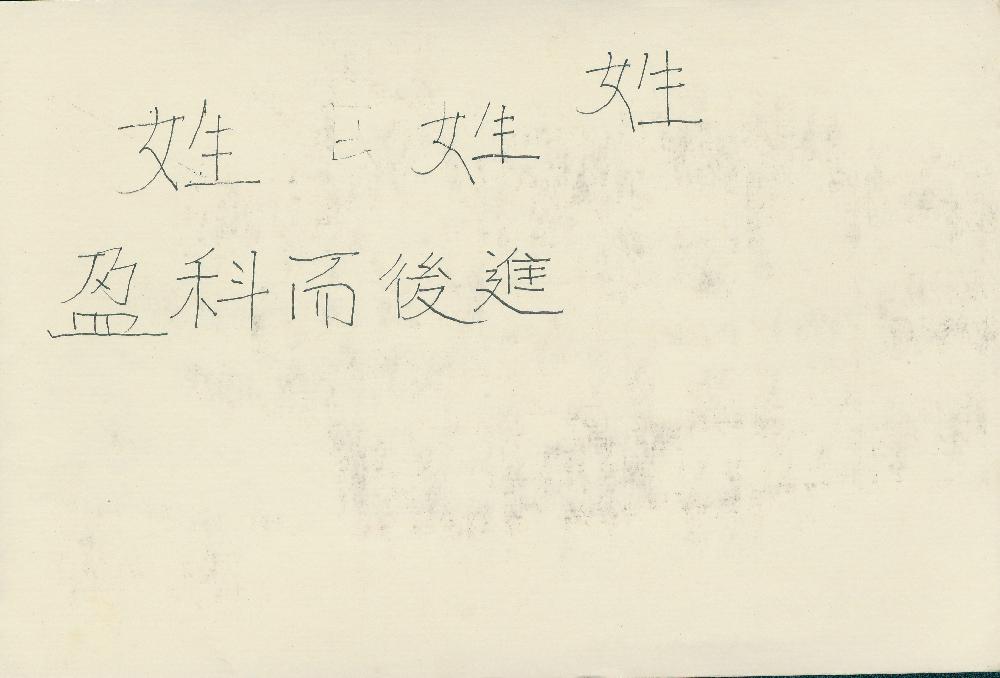 姓 姓 姓
盈科而後進